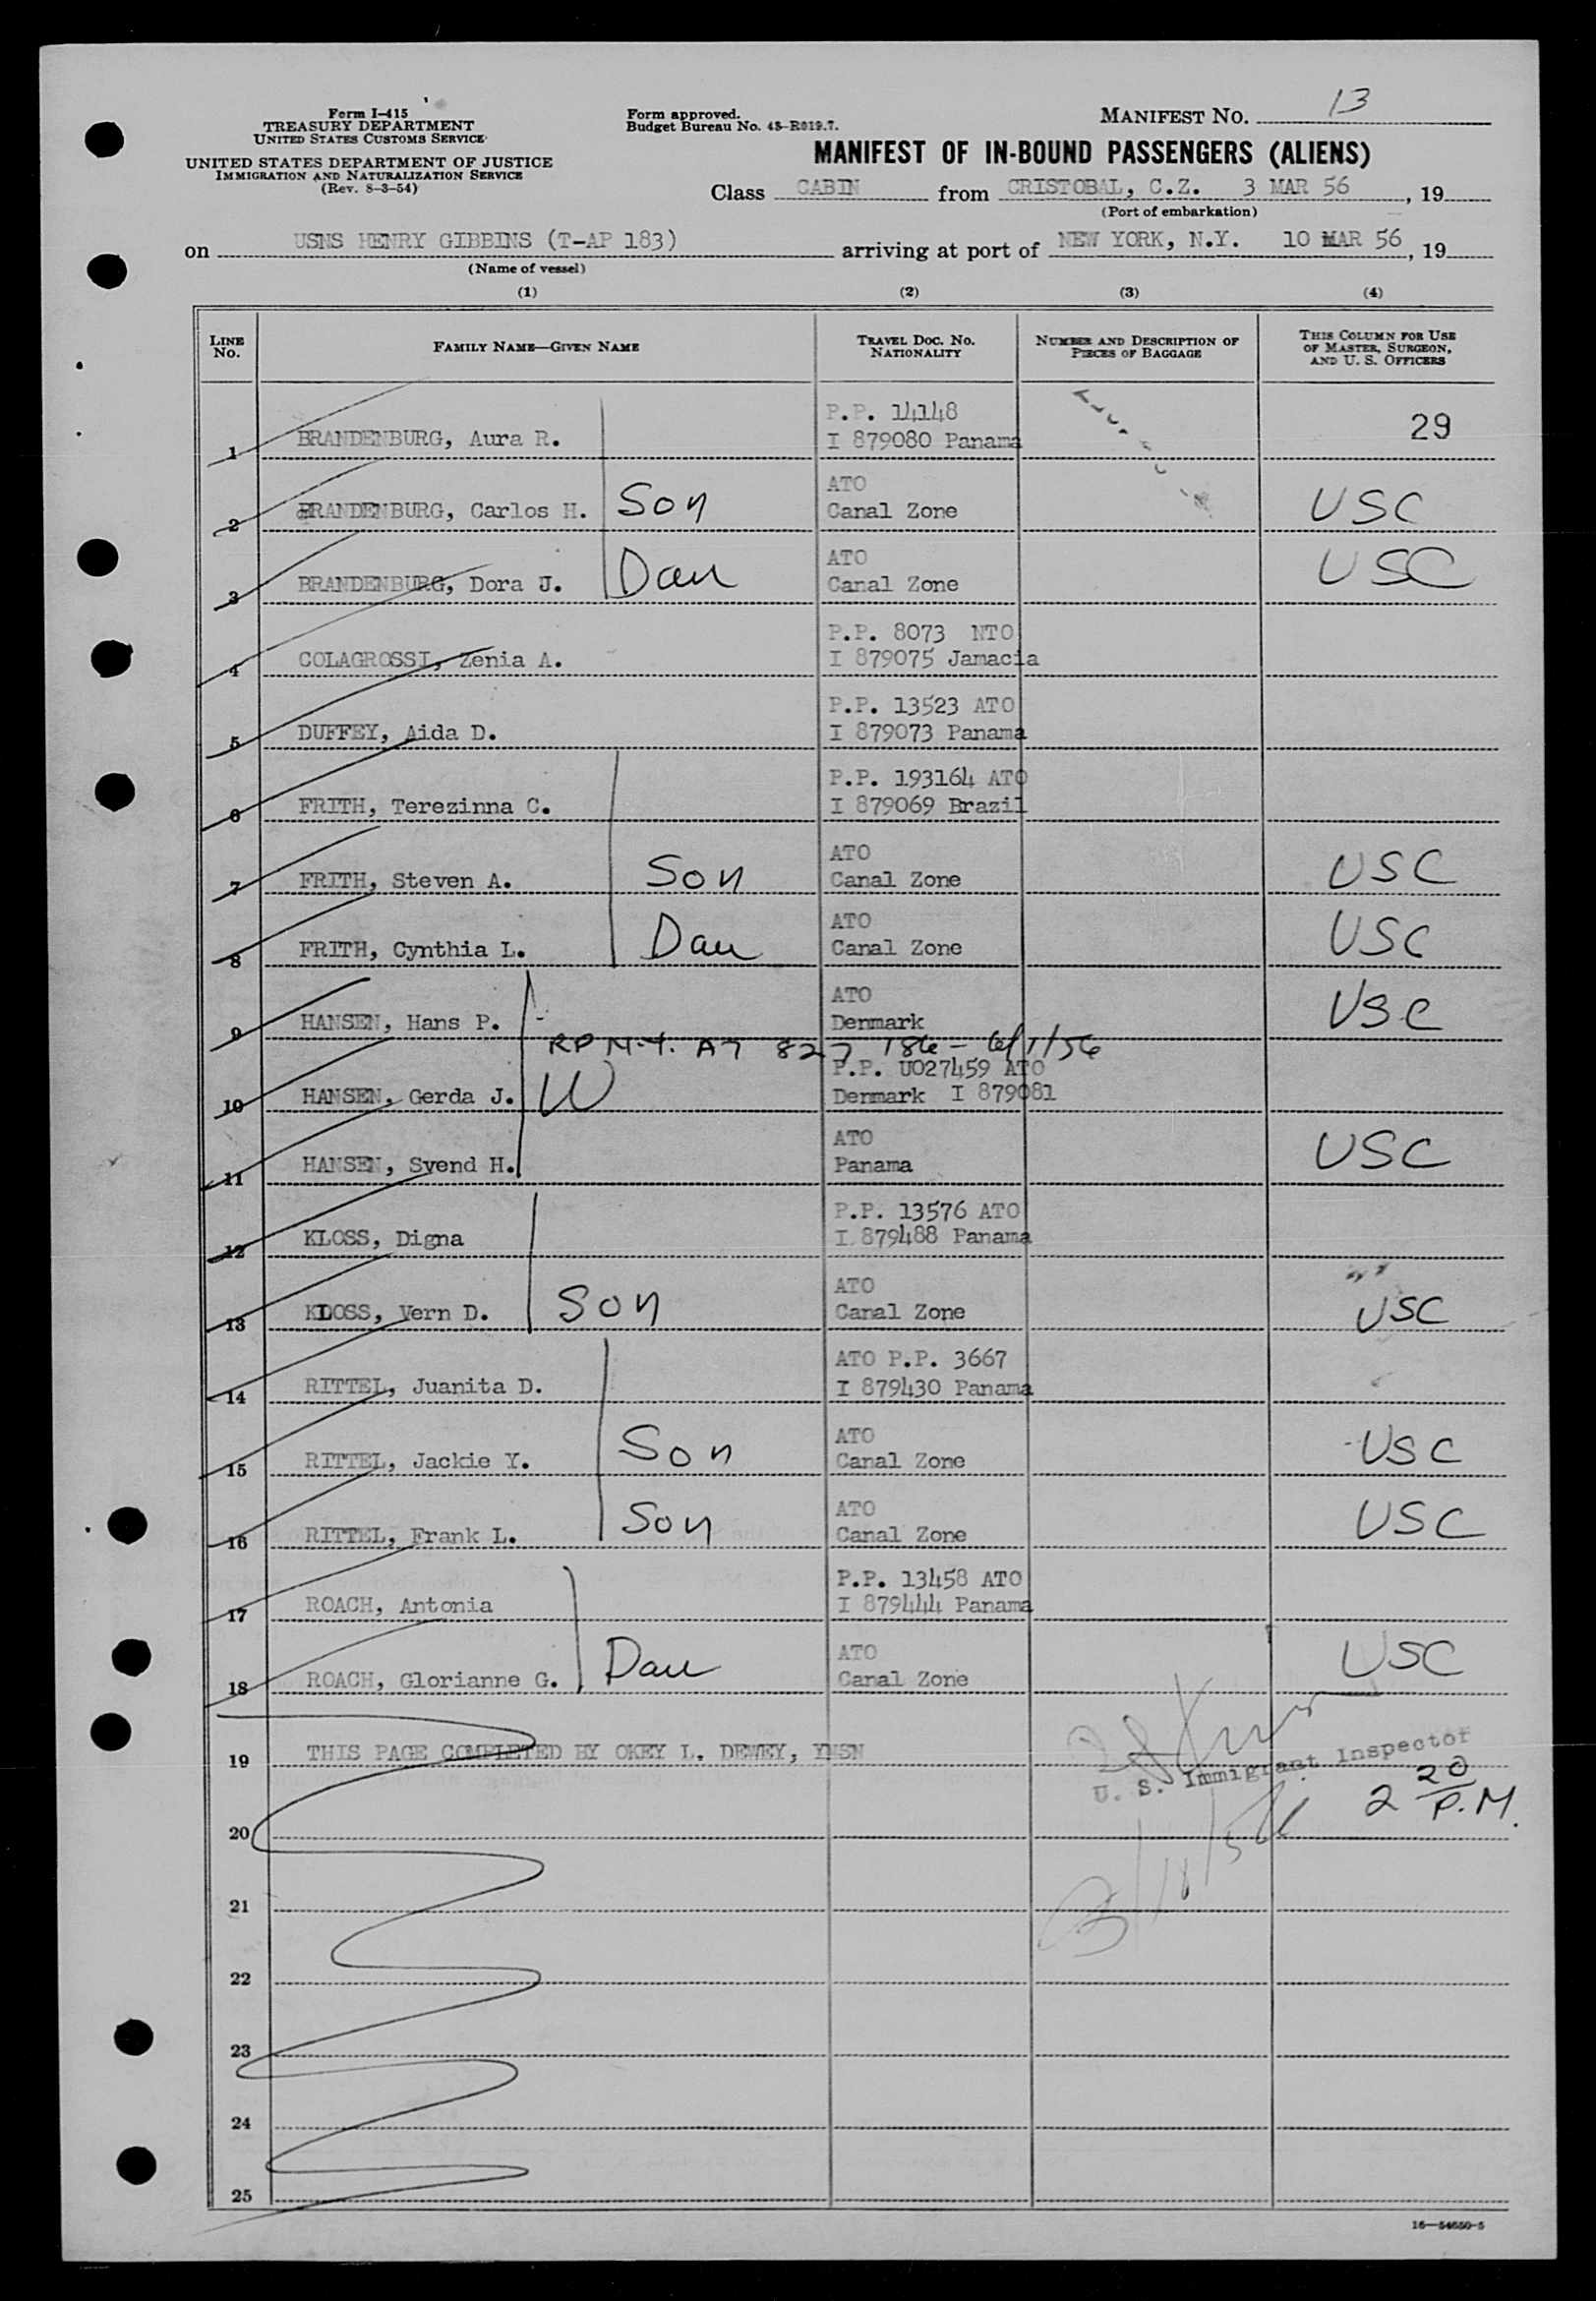 Form I-415
TREASURY DEPARTMENT
UNITED STATES CUSTOMS SERVICE
UNITED STATES DEPARTMENT OF JUSTICE
IMMIGRATION AND NATURALIZATION SERVICE
(Rev. 8-3-54)
Form approved.
Budget Bureau No. 43-R019.7.
MANIFEST NO. 13
MANIFEST OF IN-BOUND PASSENGERS (ALIENS)
Class CABIN from CRISTOBAL, C.Z. 3 MAR 56, 19
(Port of embarkation)
on USNS HENRY GIBBINS (T-AP 183) arriving at port of NEW YORK, N.Y. 10 MAR 56, 19
(Name of vessel)
(1) (2) (3) (4)
LINE NO. FAMILY NAME—GIVEN NAME TRAVEL DOC. NO. NATIONALITY NUMBER AND DESCRIPTION OF PIECES OF BAGGAGE THIS COLUMN FOR USE OF MASTER, SURGEON, AND U. S. OFFICERS
P.P. 14148
1 BRANDENBURG, Aura R. I 879080 Panama 29
ATO
2 BRANDENBURG, Carlos H. Son Canal Zone USC
ATO
3 BRANDENBURG, Dora J. Dau Canal Zone USC
P.P. 8073 NTO
4 COLAGROSSI, Zenia A. I 879075 Jamacia
P.P. 13523 ATO
5 DUFFEY, Aida D. I 879073 Panama
P.P. 193164 ATO
6 FRITH, Terezinna C. I 879069 Brazil
ATO
7 FRITH, Steven A. Son Canal Zone USC
ATO
8 FRITH, Cynthia L. Dau Canal Zone USC
ATO
9 HANSEN, Hans P. Denmark USC
RP N.Y. A7 827 186 - 6/1/56
P.P. U027459 ATO
10 HANSEN, Gerda J. W Denmark I 879081
ATO
11 HANSEN, Svend H. Panama USC
P.P. 13576 ATO
12 KLOSS, Digna I 879488 Panama
ATO
13 KLOSS, Vern D. Son Canal Zone USC
ATO P.P. 3667
14 RITTEL, Juanita D. I 879430 Panama
ATO
15 RITTEL, Jackie Y. Son Canal Zone USC
ATO
16 RITTEL, Frank L. Son Canal Zone USC
P.P. 13458 ATO
17 ROACH, Antonia I 879444 Panama
ATO
18 ROACH, Glorianne G. Dau Canal Zone USC
19 THIS PAGE COMPLETED BY OKEY L. DEWEY, YNSN
U. S. Immigrant Inspector
2 20 P.M.
20 3/11/56
21
22
23
24
25
16—54650-5